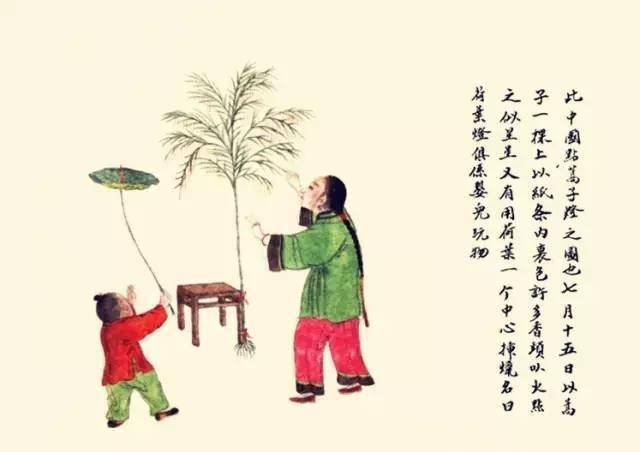 此中國點蒿子燈之圖也七月十五日以蒿
子一棵上以紙条内裹包許多香頭以火點
之似星星又有用荷葉一个中心揷蠟名曰
荷葉燈俱係嬰児玩物